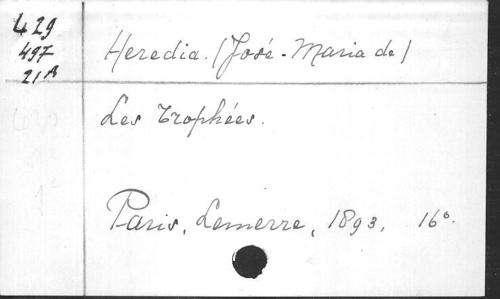 429
497
21A
Heredia. (José-Maria de)
Les Trophées.
Paris, Lemerre, 1893, 16°.